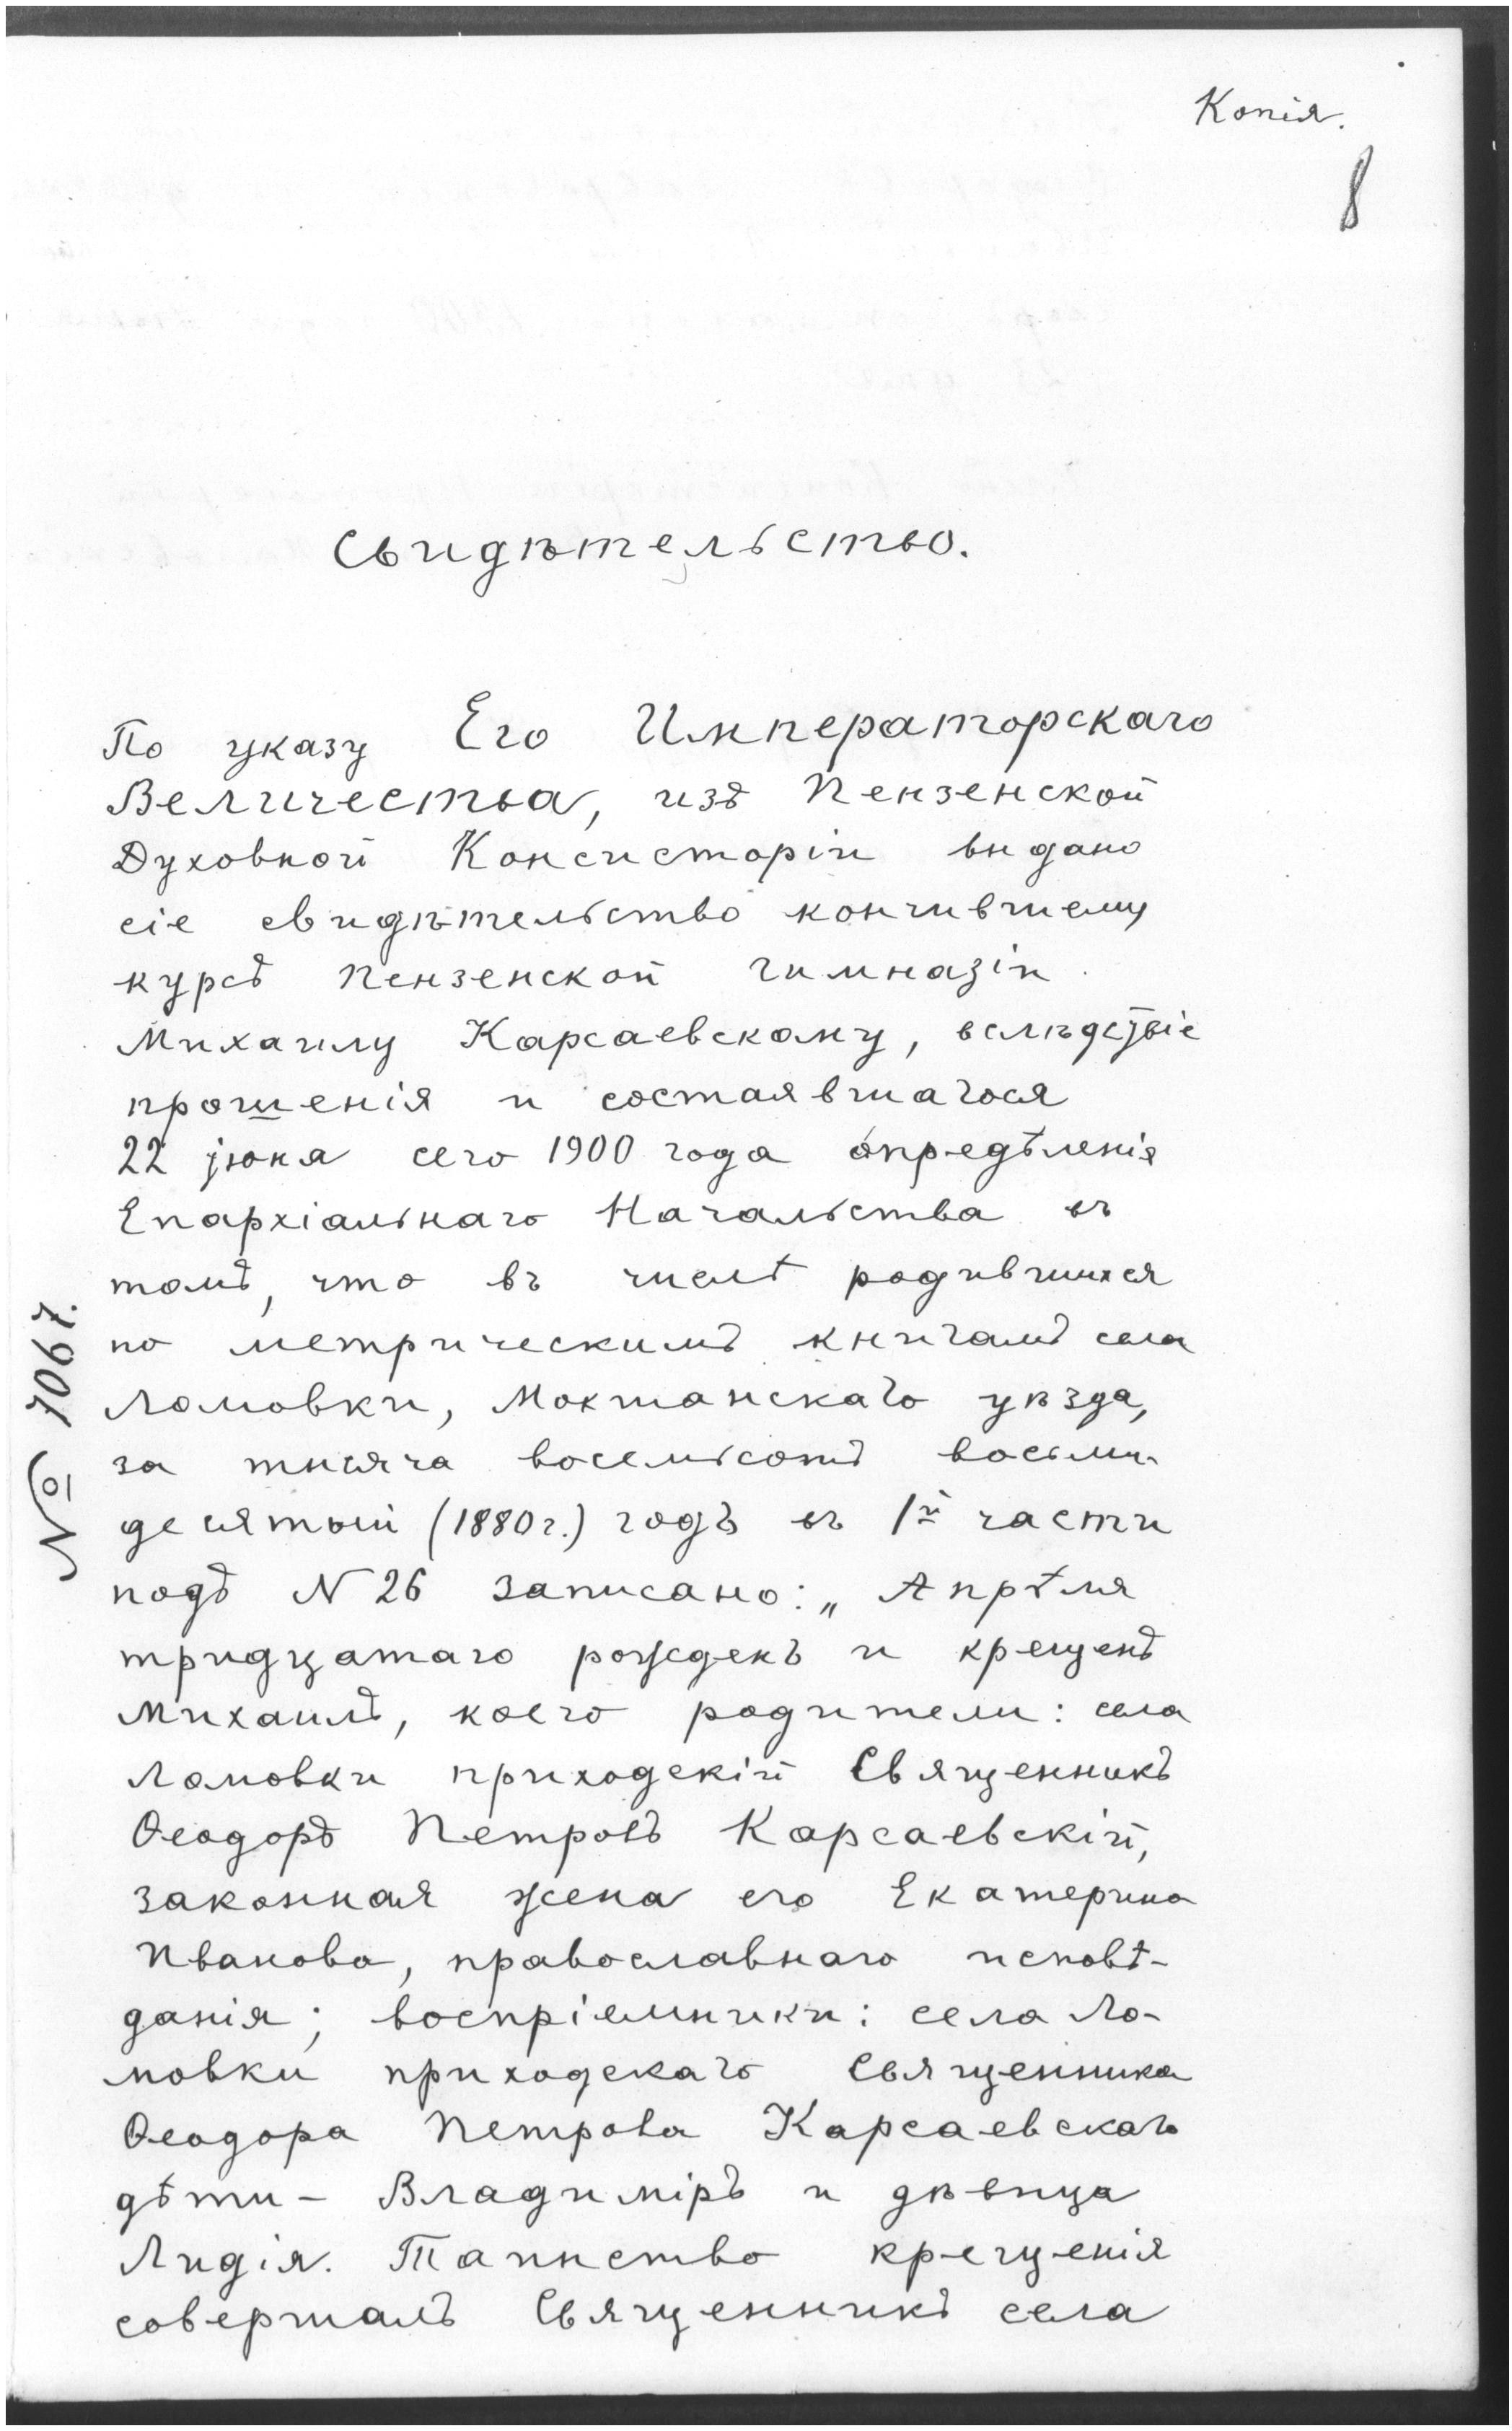 Копія.
8
Свидѣтельство.
По указу Его Императорскаго
Величества, изъ Пензенской
Духовной Консисторіи выдано
сіе свидѣтельство кончившему
курсъ Пензенской гимназіи
Михаилу Карсаевскому, вслѣдствіе
прошенія и состоявшагося
22 іюня сего 1900 года опредѣленія
Епархіальнаго Начальства въ
томъ, что въ числѣ родившихся
по метрическимъ книгамъ села
Ломовки, Мокшанскаго уѣзда,
за тысяча восемьсотъ восьми-
десятый (1880 г.) годъ въ 1й части
подъ N 26 записано: „Апрѣля
тридцатаго рожденъ и крещенъ
Михаилъ, коего родители: села
Ломовки приходскій Священникъ
Ѳеодоръ Петровъ Карсаевскій,
законная жена его Екатерина
Иванова, православнаго исповѣ-
данія; воспріемники: села Ло-
мовки приходскаго Священника
Ѳеодора Петрова Карсаевскаго
дѣти - Владиміръ и дѣвица
Лидія. Таинство крещенія
совершалъ Священникъ села
№ 7067.